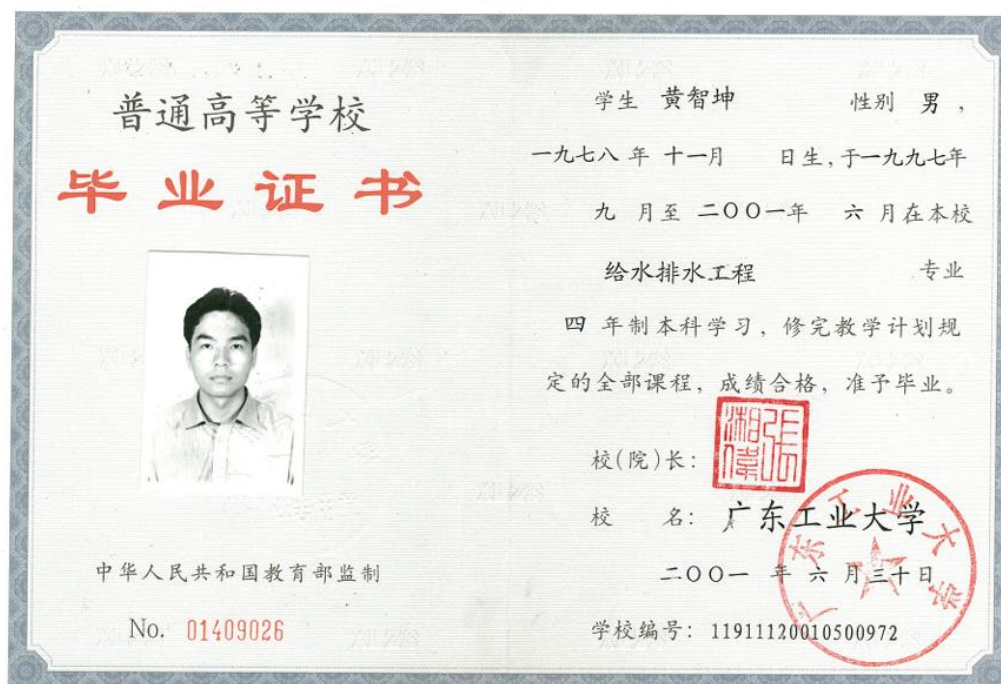 普通高等学校
毕业证书
中华人民共和国教育部监制
No. 01409026
学生 黄智坤 性别 男，
一九七八 年 十一月 日生，于一九九七年
九 月至 二〇〇一年 六 月在本校
给水排水工程 专业
四 年制本科学习，修完教学计划规
定的全部课程，成绩合格，准予毕业。
校(院)长：
张湘伟
校 名： 广东工业大学
广东工业大学
二〇〇一 年 六 月三十日
学校编号：11911120010500972